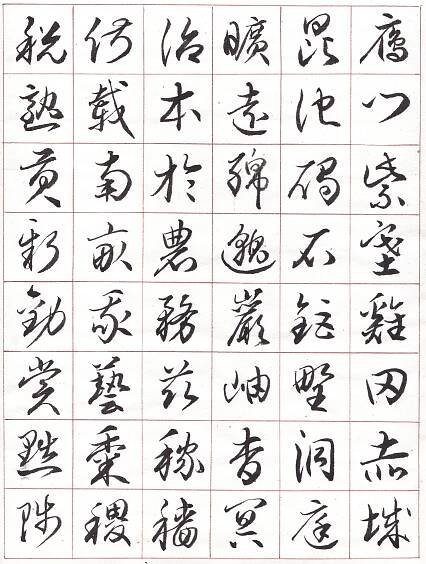 鴈門紫塞雞田赤城
昆池碣石鉅野洞庭
曠遠綿邈巖岫杳冥
治本於農務茲稼穡
俶載南畝我藝黍稷
稅熟貢新勸賞黜陟